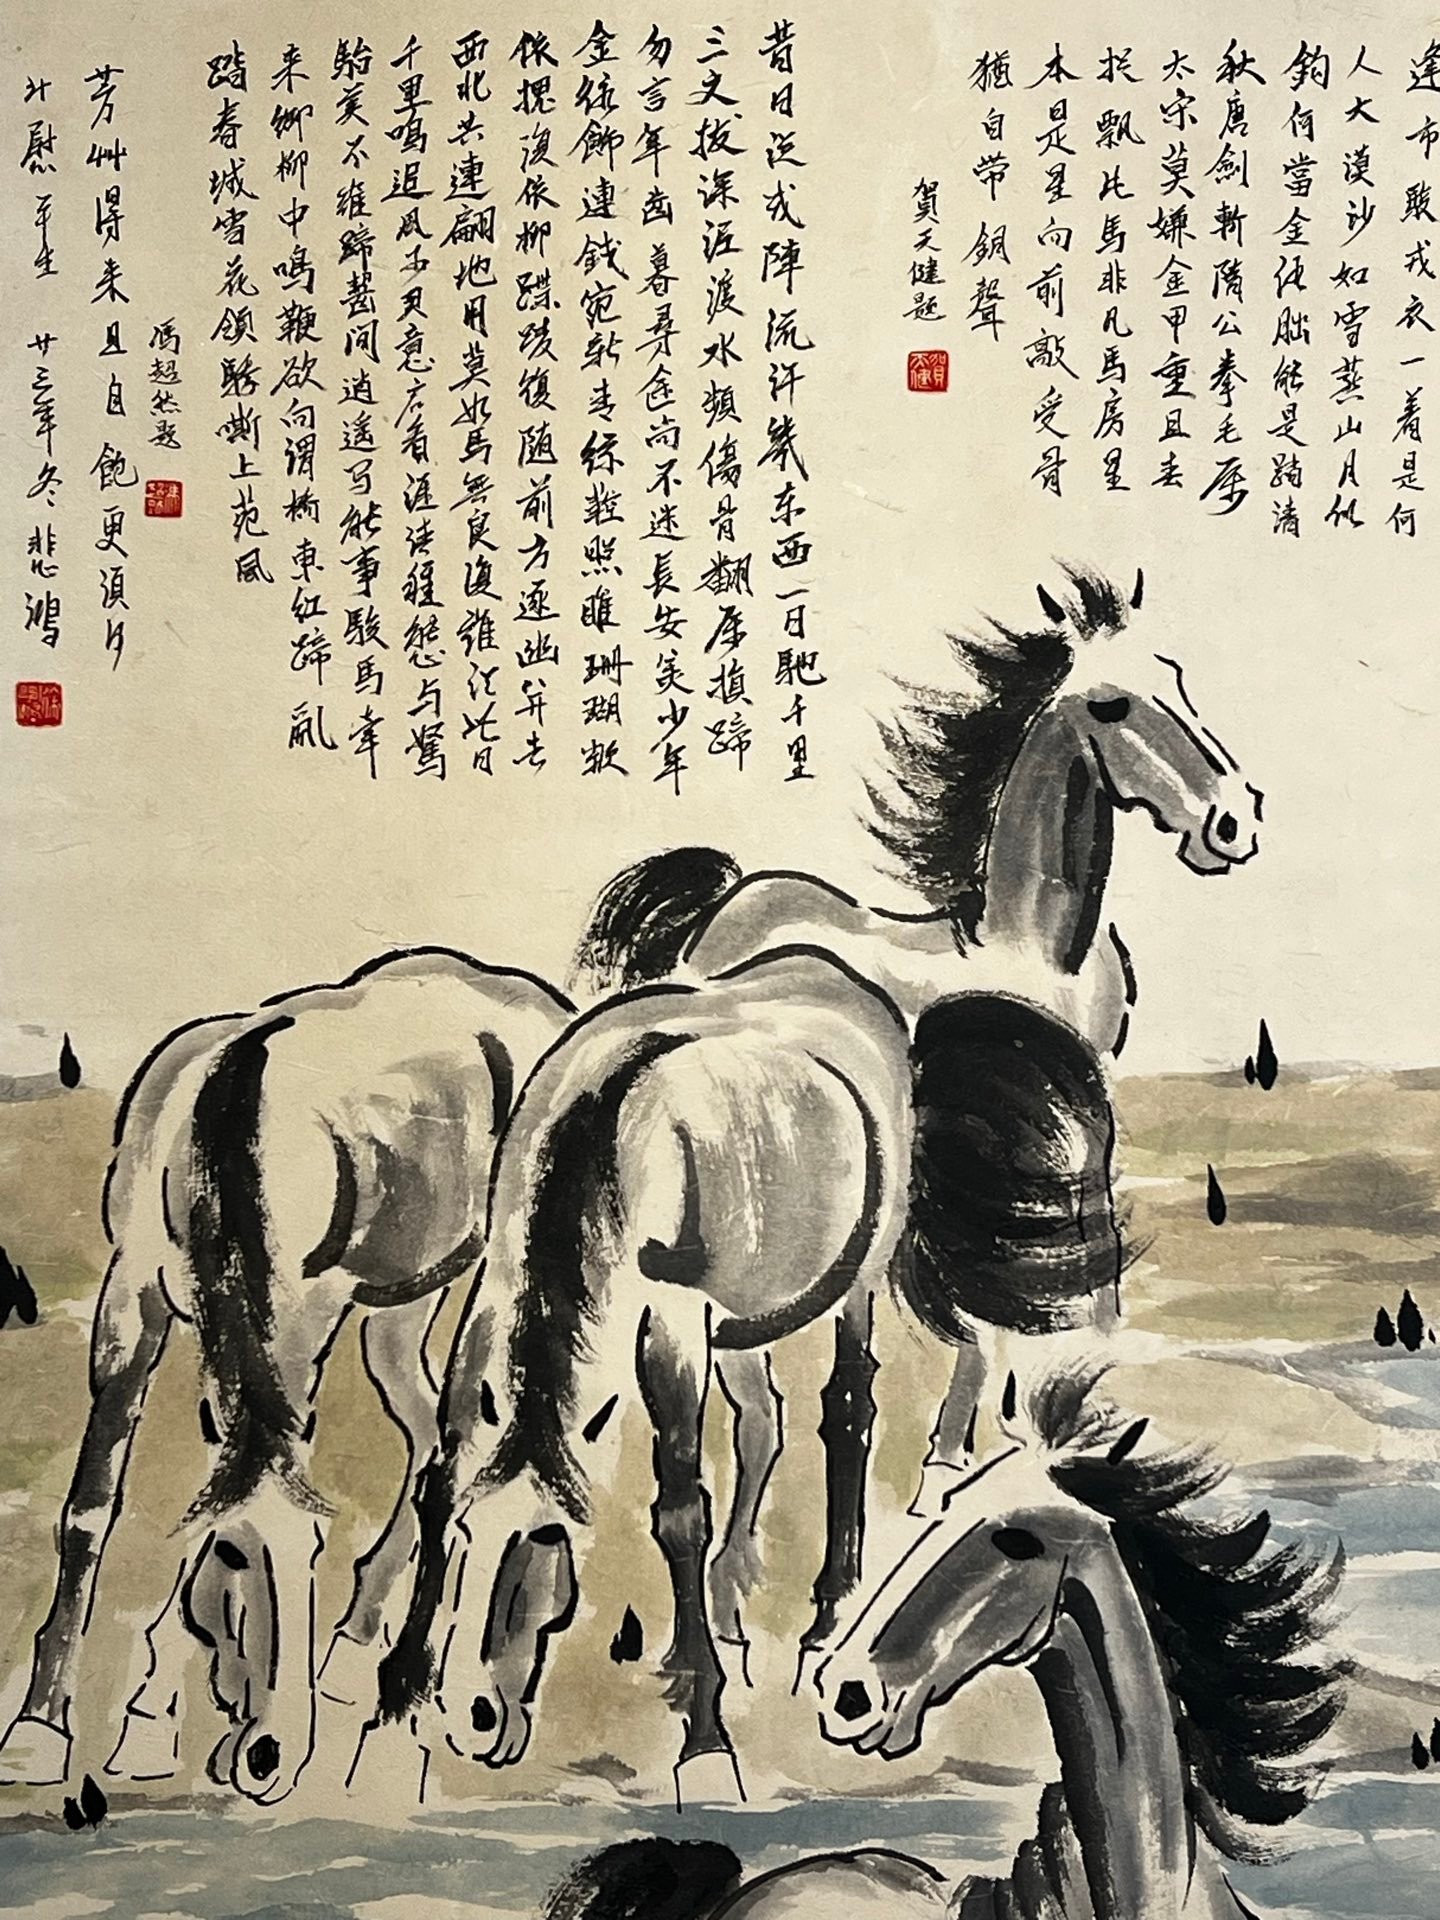 逢市駿戎衣一着是何
人大漠沙如雪燕山月似
鈎何當金 能是踏清
秋唐劍斬隋公拳毛属
太宋莫嫌金甲重且去
捉飄此馬非凡馬房星
本是星向前敲受骨
猶自带銅聲
賀天健題
昔日从戎陣流汗幾东西一日馳千里
三丈拔深泥渡水頻傷骨翻 損蹄
勿言年齒暮尋途尚不迷長安美少年
金絡飾連錢宛 青 照 珊瑚
依槐復依柳蹀 復随前方逐幽并去
西北共連翩地用莫如馬無良復誰 此日
千里鳴追風 意 看 與駑
駘 不 蹄齧間逍遥 能事駿馬牽
来御柳中鳴鞭欲向渭橋東红蹄亂
踏春城雪花頷驕嘶上苑風
馮超然題
芳艸得来且自飽更須
斗慰平生 廿三年冬 悲鴻